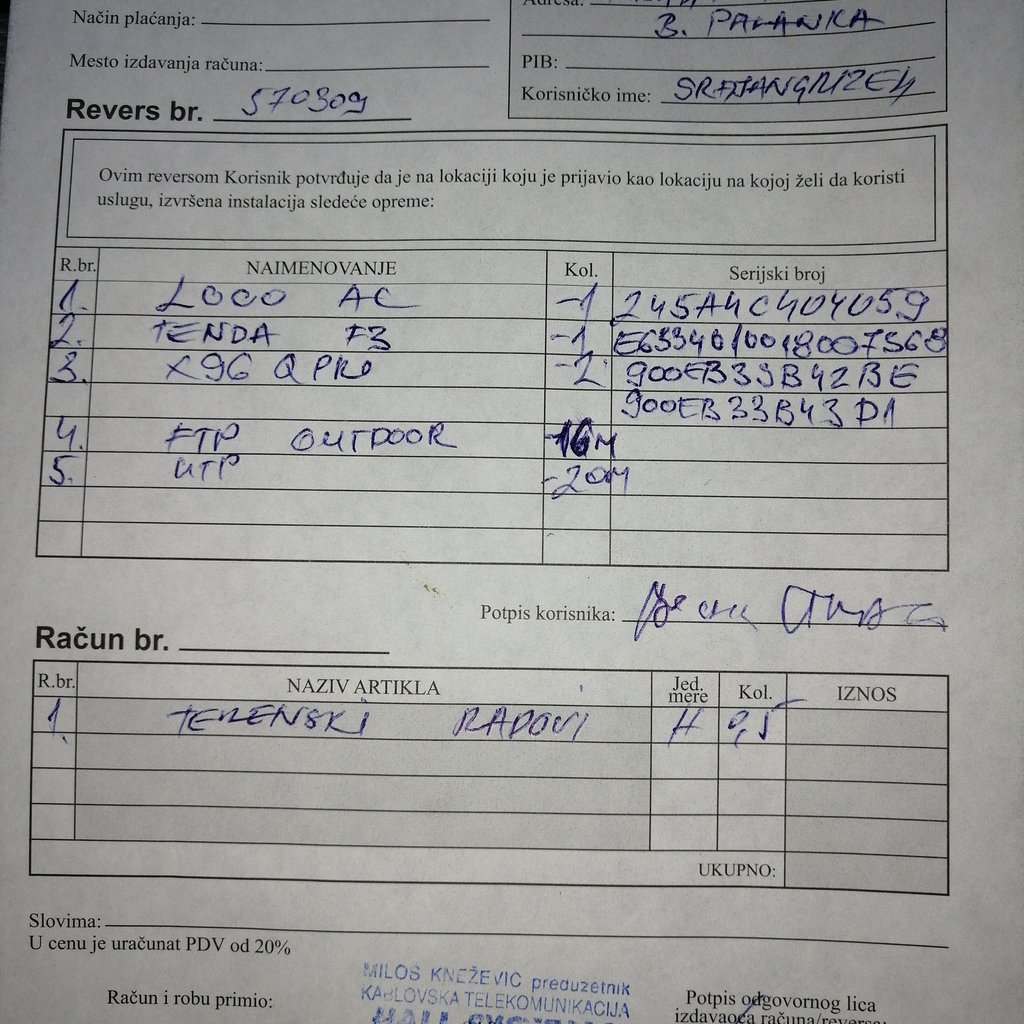 Način plaćanja:
B. PALANKA
Mesto izdavanja računa:
PIB:
Korisničko ime: SRDJANGRIZELJ
Revers br. 570309
Ovim reversom Korisnik potvrđuje da je na lokaciji koju je prijavio kao lokaciju na kojoj želi da koristi
uslugu, izvršena instalacija sledeće opreme:
R.br. NAIMENOVANJE Kol. Serijski broj
1. LOCO AC -1 245A4C404059
2. TENDA F3 -1 E6334010018007568
3. X96 Q PRO -2 900EB33B42BE
900EB33B43D1
4. FTP OUTDOOR -16M
5. UTP -20M
Potpis korisnika:
Račun br.
R.br. NAZIV ARTIKLA Jed. mere Kol. IZNOS
1. TERENSKI RADOVI H 0,5
UKUPNO:
Slovima:
U cenu je uračunat PDV od 20%
MILOŠ KNEŽEVIĆ preduzetnik
KABLOVSKA TELEKOMUNIKACIJA
Račun i robu primio:
Potpis odgovornog lica
izdavaoca računa/reversa: